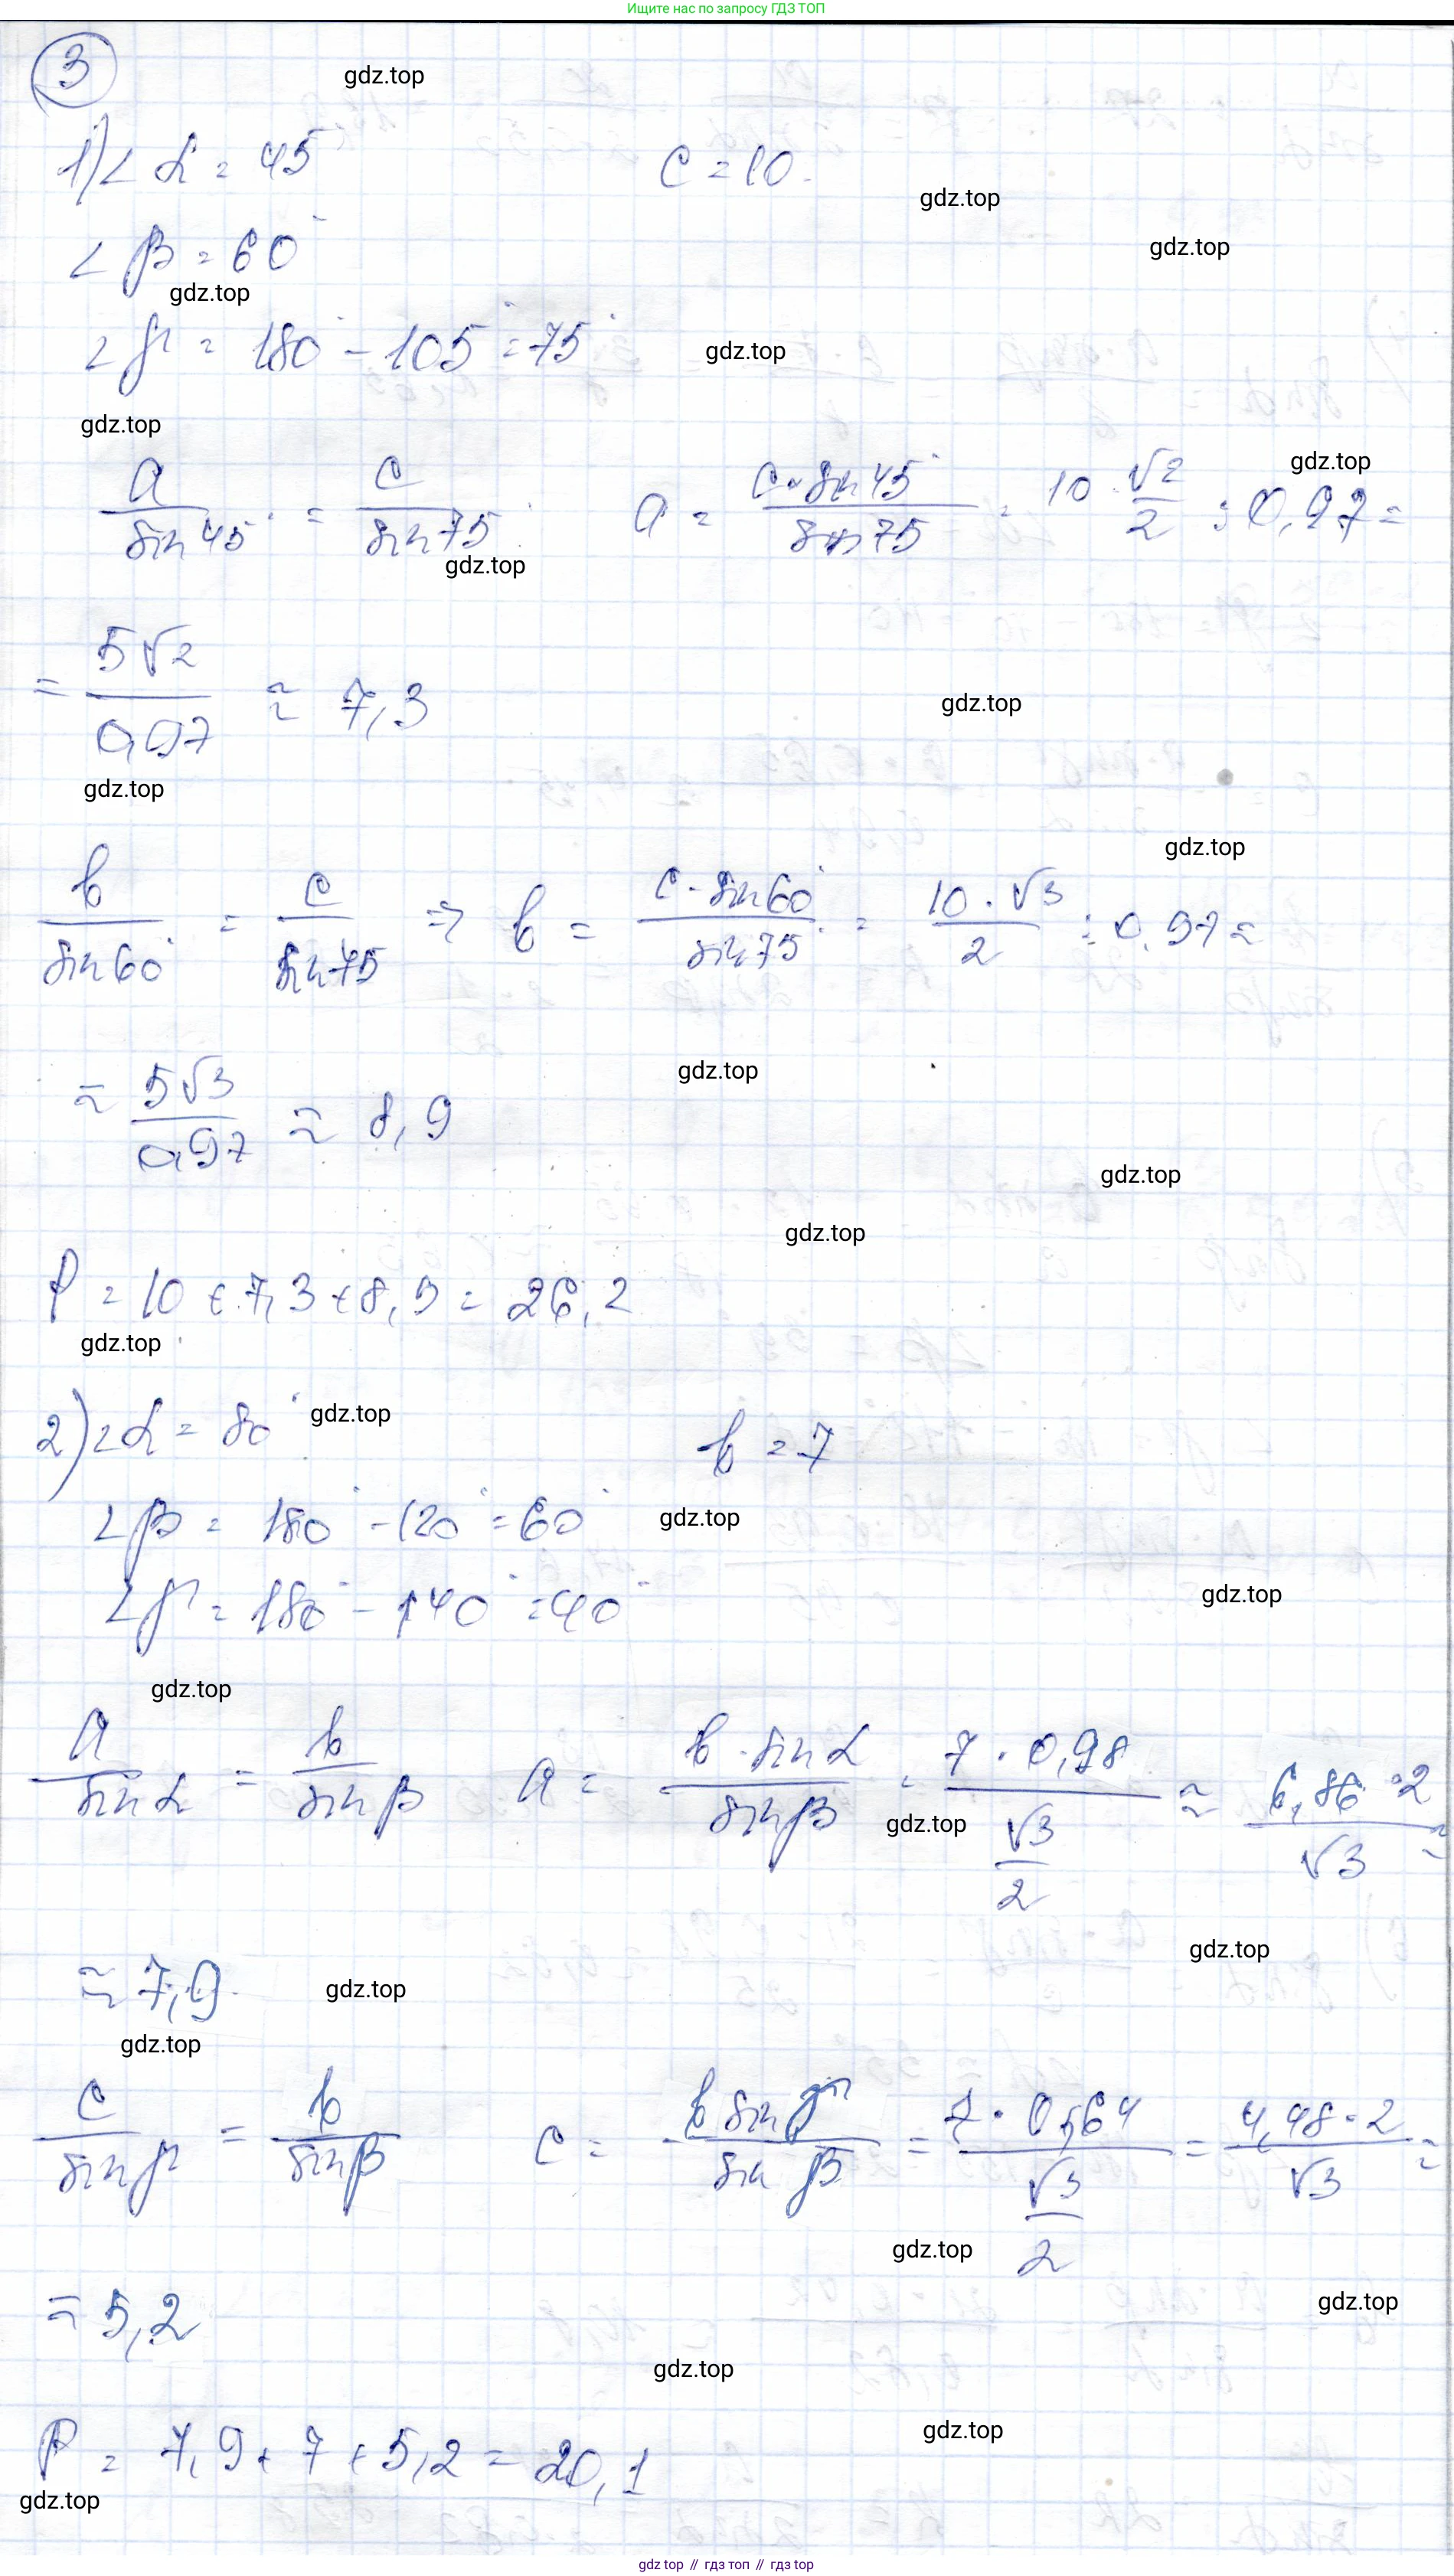 Ищите нас по запросу ГДЗ ТОП
3
gdz.top
1) ∠α = 45° c = 10
gdz.top
∠β = 60°
gdz.top
gdz.top
∠γ = 180° - 105° = 75°
gdz.top
gdz.top
a/sin45° = c/sin75° a = c·sin45°/sin75° = 10·√2/2 : 0,97 =
gdz.top
gdz.top
= 5√2/0,97 ≈ 7,3
gdz.top
gdz.top
gdz.top
b/sin60° = c/sin75 ⇒ b = c·sin60°/sin75° = 10·√3/2 : 0,97 ≈
≈ 5√3/0,97 ≈ 8,9
gdz.top
gdz.top
gdz.top
P = 10 + 7,3 + 8,9 = 26,2
gdz.top
2) ∠α = 80° b = 7
gdz.top
∠β = 180° - 120° = 60°
gdz.top
∠γ = 180° - 140° = 40°
gdz.top
gdz.top
a/sinα = b/sinβ a = b·sinα/sinβ = 7·0,98/(√3/2) ≈ 6,86·2/√3 ≈
gdz.top
gdz.top
≈ 7,9
gdz.top
gdz.top
c/sinγ = b/sinβ c = b sinγ/sinβ = 7·0,64/(√3/2) = 4,48·2/√3 ≈
gdz.top
≈ 5,2
gdz.top
gdz.top
P = 7,9 + 7 + 5,2 = 20,1
gdz.top
gdz.top
gdz top // гдз топ // gdz top